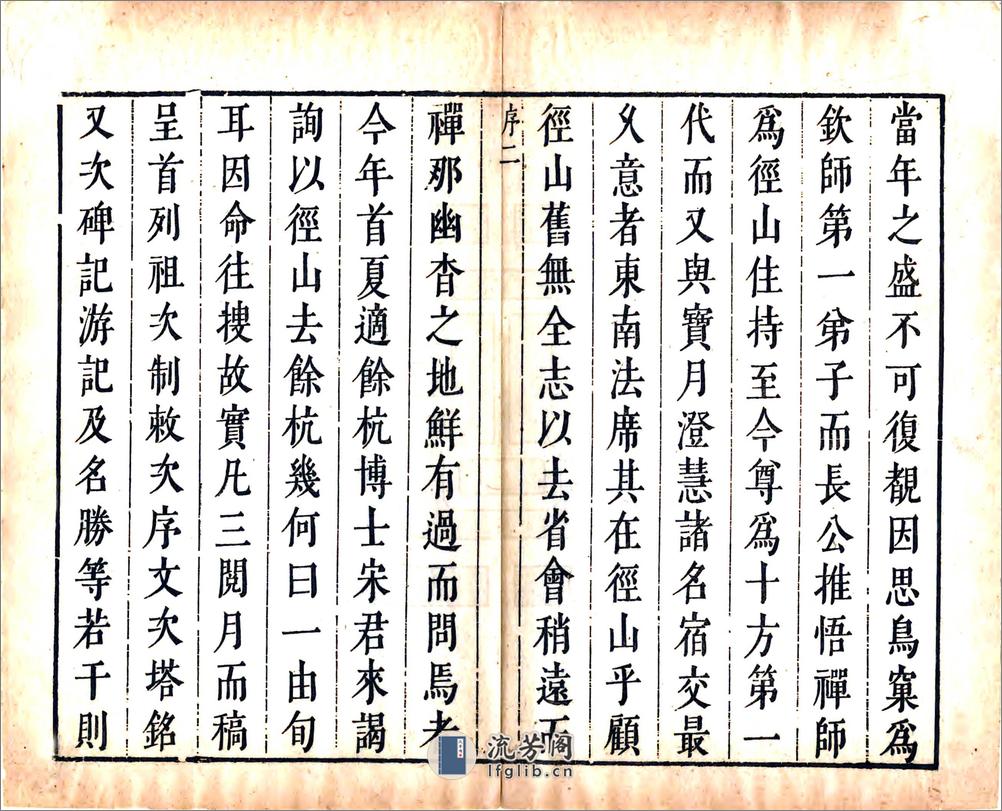 當年之盛不可復覩因思鳥窠爲
欽師第一弟子而長公推悟禪師
爲徑山住持至今尊爲十方第一
代而又與寶月澄慧諸名宿交最
久意者東南法席其在徑山乎顧
徑山舊無全志以去省會稍遠而
序二
禪那幽杳之地鮮有過而問焉者
今年首夏適餘杭博士宋君來謁
詢以徑山去餘杭幾何曰一由旬
耳因命往搜故實凡三閱月而稿
呈首列祖次制敕次序文次塔銘
又次碑記游記及名勝等若干則
流芳阁
lfglib.cn